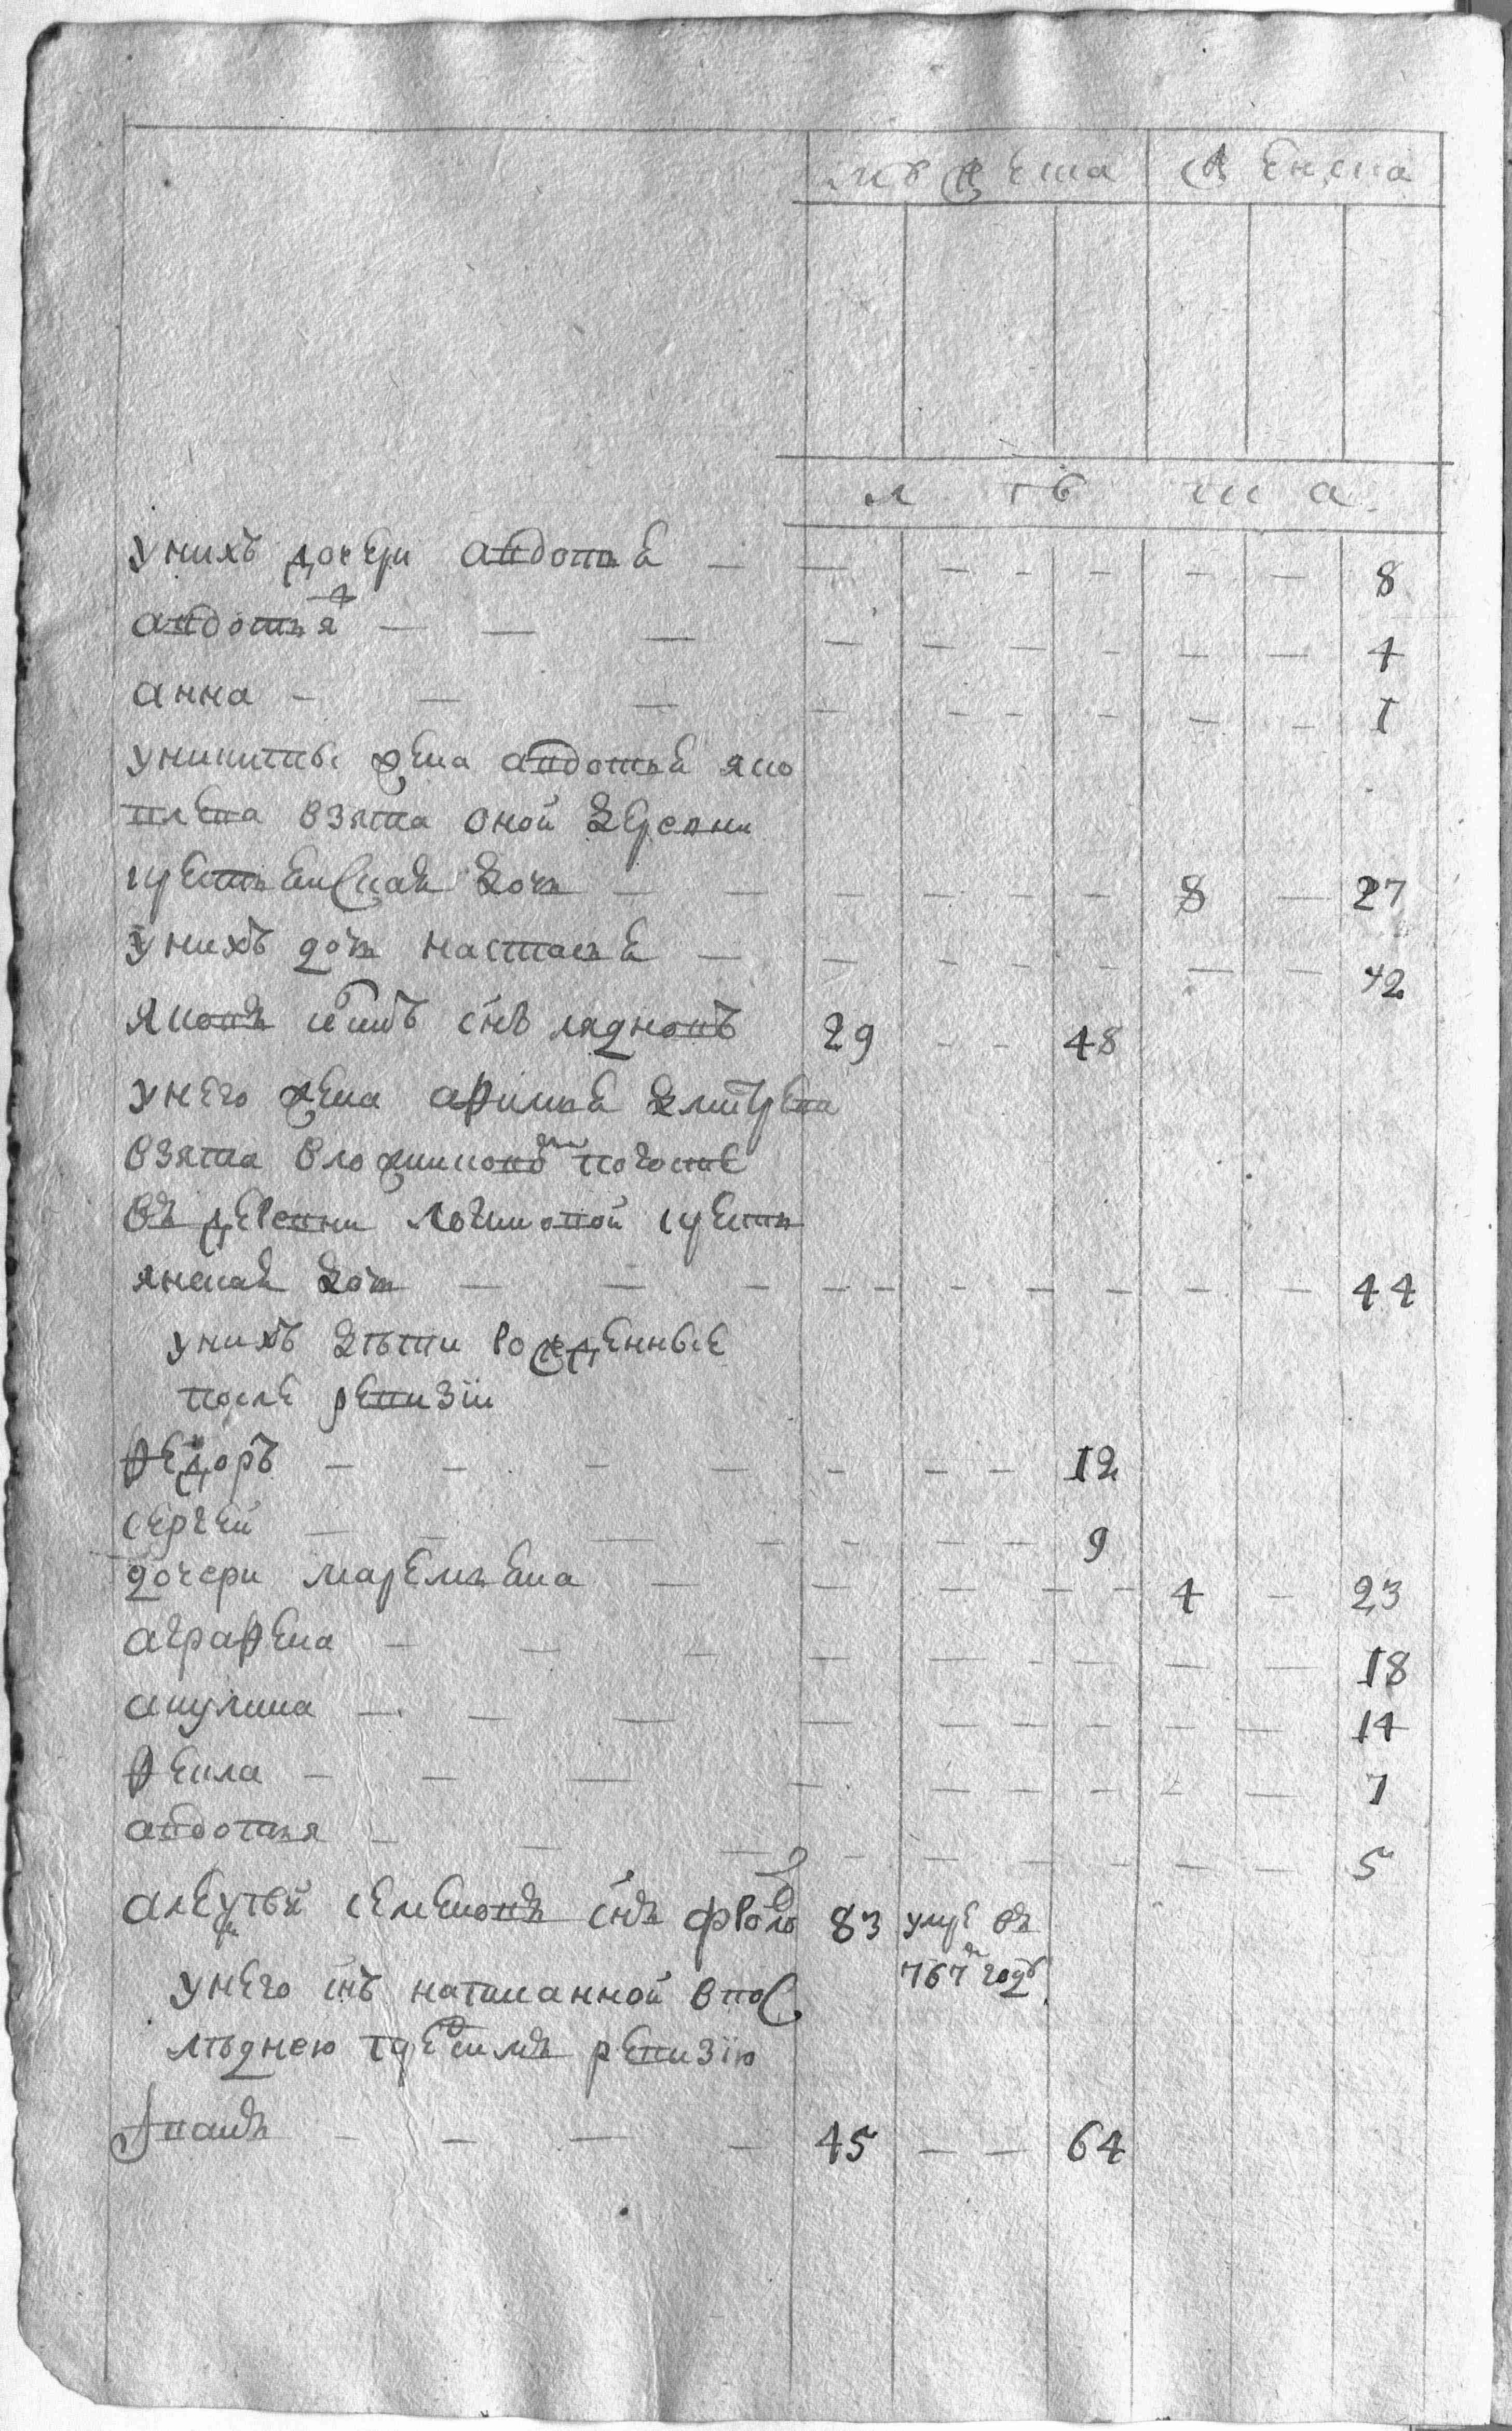 мужеска женска
лѣта
у нихъ дочери авдотья — 8
авдотья — 4
анна — 1
у никиты жена авдотья яко
влева взята оной деревни
крестьянская дочь — 8 — 27
у нихъ дочь настасья — 12
яковъ сынъ 29 — 48
у него жена афимья дмитрева
взята в погосте
въ деревни крестья
янская дочь — 44
у нихъ дѣти рожденные
после ревизiи
федоръ — 12
сергей — 9
дочери маремьяна — 4 — 23
аграфена — 18
акулина — 14
фекла — 7
авдотья — 5
семеновъ снъ фролъ 83 умре въ
767м годѣ
у него снъ написанной в пос
лѣднею пред симъ ревизiю
Iванъ — 45 — 64